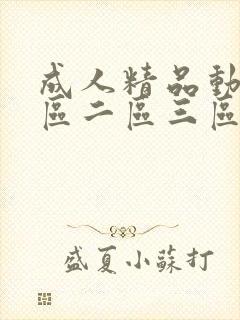 成人精品動
區二區三區
盛夏小蘇打